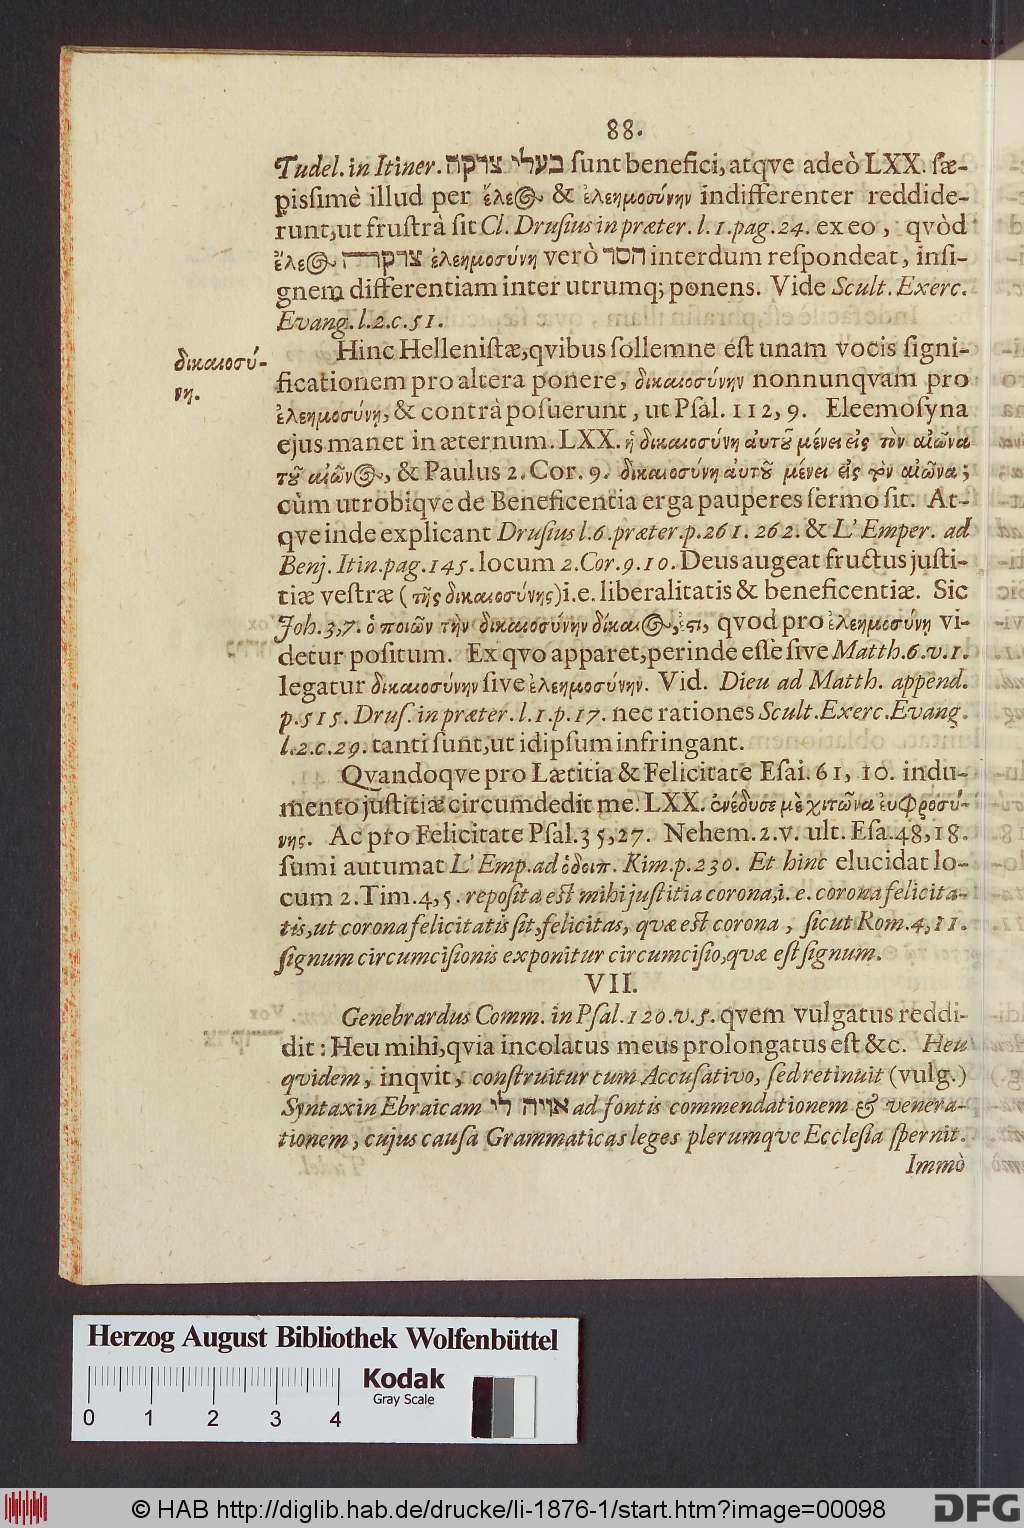 88.
Tudel. in Itiner. בעלי צדקה sunt benefici, atqve adeò LXX. sæ-
pissimè illud per ἔλεος & ἐλεημοσύνην indifferenter reddide-
runt, ut frustrà sit Cl. Drusius in præter. l. 1. pag. 24. ex eo, qvòd
ἔλεος צדקה ἐλεημοσύνη verò חסד interdum respondeat, insi-
gnem differentiam inter utrumq; ponens. Vide Scult. Exerc.
Evang. l. 2. c. 51.
δικαιοσύ-
νη.
Hinc Hellenistæ, qvibus sollemne est unam vocis signi-
ficationem pro altera ponere, δικαιοσύνην nonnunqvam pro
ἐλεημοσύνῃ, & contrà posuerunt, ut Psal. 112, 9. Eleemosyna
ejus manet in æternum. LXX. ἡ δικαιοσύνη αὐτοῦ μένει εἰς τὸν αἰῶνα
τοῦ αἰῶνος, & Paulus 2. Cor. 9. δικαιοσύνη αὐτοῦ μένει εἰς τὸν αἰῶνα;
cùm utrobiqve de Beneficentia erga pauperes sermo sit. At-
qve inde explicant Drusius l. 6. præter. p. 261. 262. & L'Emper. ad
Benj. Itin. pag. 145. locum 2. Cor. 9. 10. Deus augeat fructus justi-
tiæ vestræ (τῆς δικαιοσύνης) i. e. liberalitatis & beneficentiæ. Sic
Joh. 3, 7. ὁ ποιῶν τὴν δικαιοσύνην δίκαιός, ἐςι, qvod pro ἐλεημοσύνῃ vi-
detur positum. Ex qvo apparet, perinde esse sive Matth. 6. v. 1.
legatur δικαιοσύνην sive ἐλεημοσύνην. Vid. Dieu ad Matth. append.
p. 515. Drus. in præter. l. 1. p. 17. nec rationes Scult. Exerc. Evang.
l. 2. c. 29. tanti sunt, ut id ipsum infringant.
Qvandoqve pro Lætitia & Felicitate Esai. 61, 10. indu-
mento justitiæ circumdedit me. LXX. ἀνέδυσε μὲ χιτῶνα ἐυφροσύ-
νης. Ac pro Felicitate Psal. 35, 27. Nehem. 2. v. ult. Esa. 48, 18.
sumi autumat L'Emp. ad ὁδοιπ. Kim. p. 230. Et hinc elucidat lo-
cum 2. Tim. 4, 5. reposita est mihi justitia corona, i. e. corona felicita-
tis, ut corona felicitatis sit, felicitas, quæ est corona, sicut Rom. 4, 11.
signum circumcisionis exponitur circumcisio, quæ est signum.
VII.
Genebrardus Comm. in Psal. 120. v. 5. qvem vulgatus reddi-
dit: Heu mihi, qvia incolatus meus prolongatus est &c. Heu
quidem, inqvit, construitur cum Accusativo, sed retinuit (vulg.)
Syntaxin Ebraicam אויה לי ad fontis commendationem & venera-
tionem, cujus causâ Grammaticas leges plerumqve Ecclesia spernit.
Immò
Herzog August Bibliothek Wolfenbüttel
Kodak
Gray Scale
0 1 2 3 4
© HAB http://diglib.hab.de/drucke/li-1876-1/start.htm?image=00098
DFG